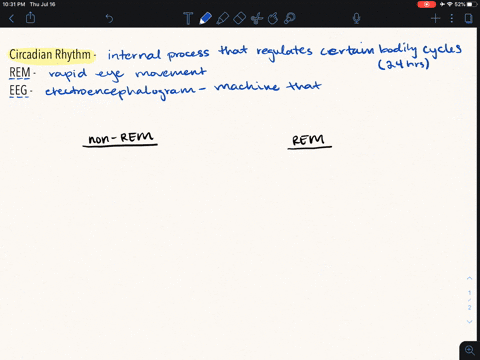 10:31 PM Thu Jul 16
52%
Circadian Rhythm - internal process that regulates certain bodily cycles
(24 hrs)
REM - rapid eye movement
EEG - electroencephalogram - machine that
non-REM REM
1
/
2